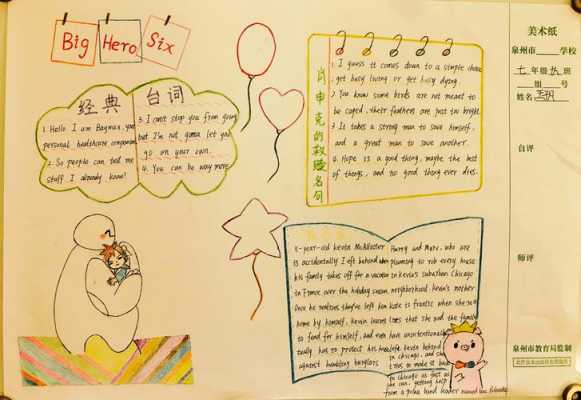 Big Hero Six
经典 台词
1. Hello I am Baymax, your
personal healthcare companion
2. So people can tell me
stuff I already know!
3. I can't stop you from going
but I'm not gonna let you
go on your own.
4. You can be way more
肖申克的救赎名句
1. I guess it comes down to a simple choice
: get busy living or get busy dying.
2. You know some birds are not meant to
be caged, their feathers are just too bright.
3. It takes a strong man to save himself,
and a great man to save another.
4. Hope is a good thing, maybe the best
of things, and no good thing ever dies.
8-year-old Kevin McAllister
is accidentally left behind when
his family takes off for a vacation
in France over the holiday season
Once he realizes they've left him
home by himself, Kevin learns
to fend for himself, and even
has to protect his house
against bumbling burglars
Harry and Marv, who are
planning to rob every house
in Kevin's suburban Chicago
neighborhood Kevin's mother
Kate is frantic when she
that she and the family
have unintentionally
Kevin behind
in Chicago, and she
tries to make it back
to Chicago as fast as
she can, getting help
from a polka band leader named Gus Polinski
美术纸
泉州市 学校
七 年级 班
组 号
姓名
自评
师评
泉州市教育局监制